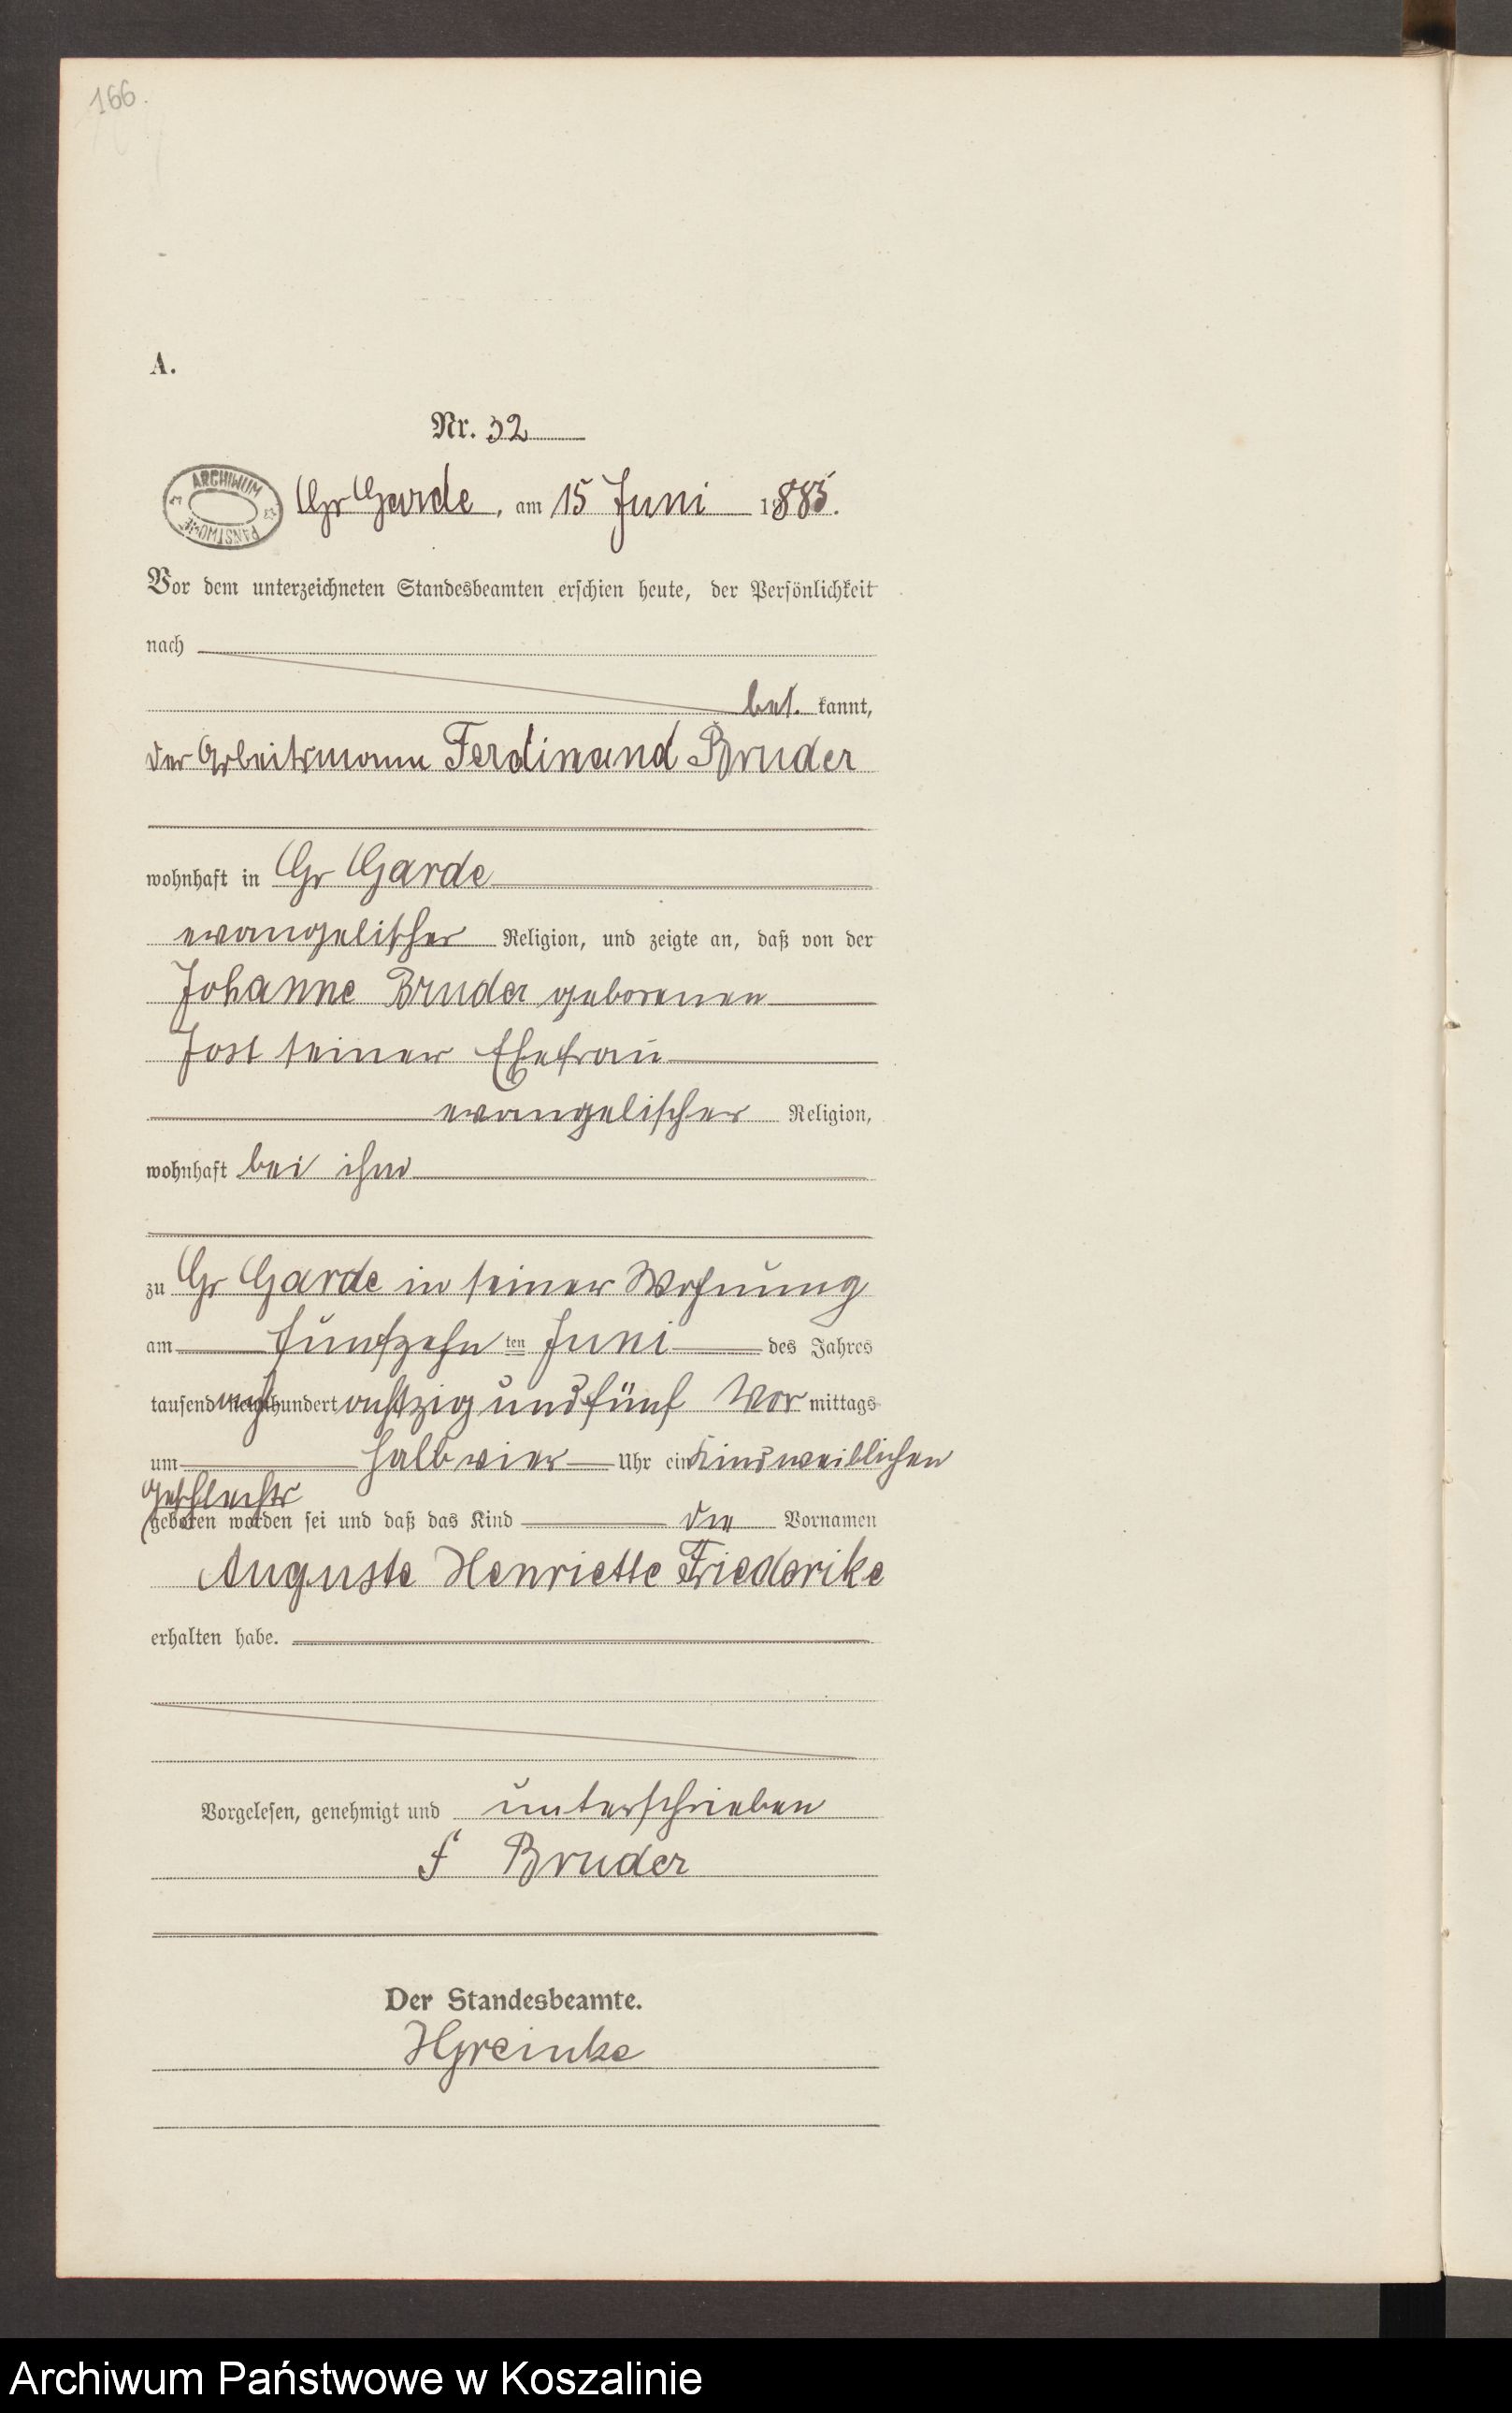 166.
A.
Nr. 32
ARCHIWUM PAŃSTWOWE
Gr Garde, am 15 Juni 1885.
Vor dem unterzeichneten Standesbeamten erschien heute, der Persönlichkeit
nach
be kannt,
der Arbeitsmann Ferdinand Bruder
wohnhaft in Gr Garde
evangelischer Religion, und zeigte an, daß von der
Johanne Bruder geborenen
Jost seiner Ehefrau
evangelischer Religion,
wohnhaft bei ihm
zu Gr Garde in seiner Wohnung
am fünfzehn ten Juni des Jahres
tausend acht hundert achtzig und fünf Vor mittags
um halb vier Uhr ein Kind weiblichen
Geschlechts
geboren worden sei und daß das Kind die Vornamen
Auguste Henriette Friederike
erhalten habe.
Vorgelesen, genehmigt und unterschrieben
F Bruder
Der Standesbeamte.
HGreinke
Archiwum Państwowe w Koszalinie